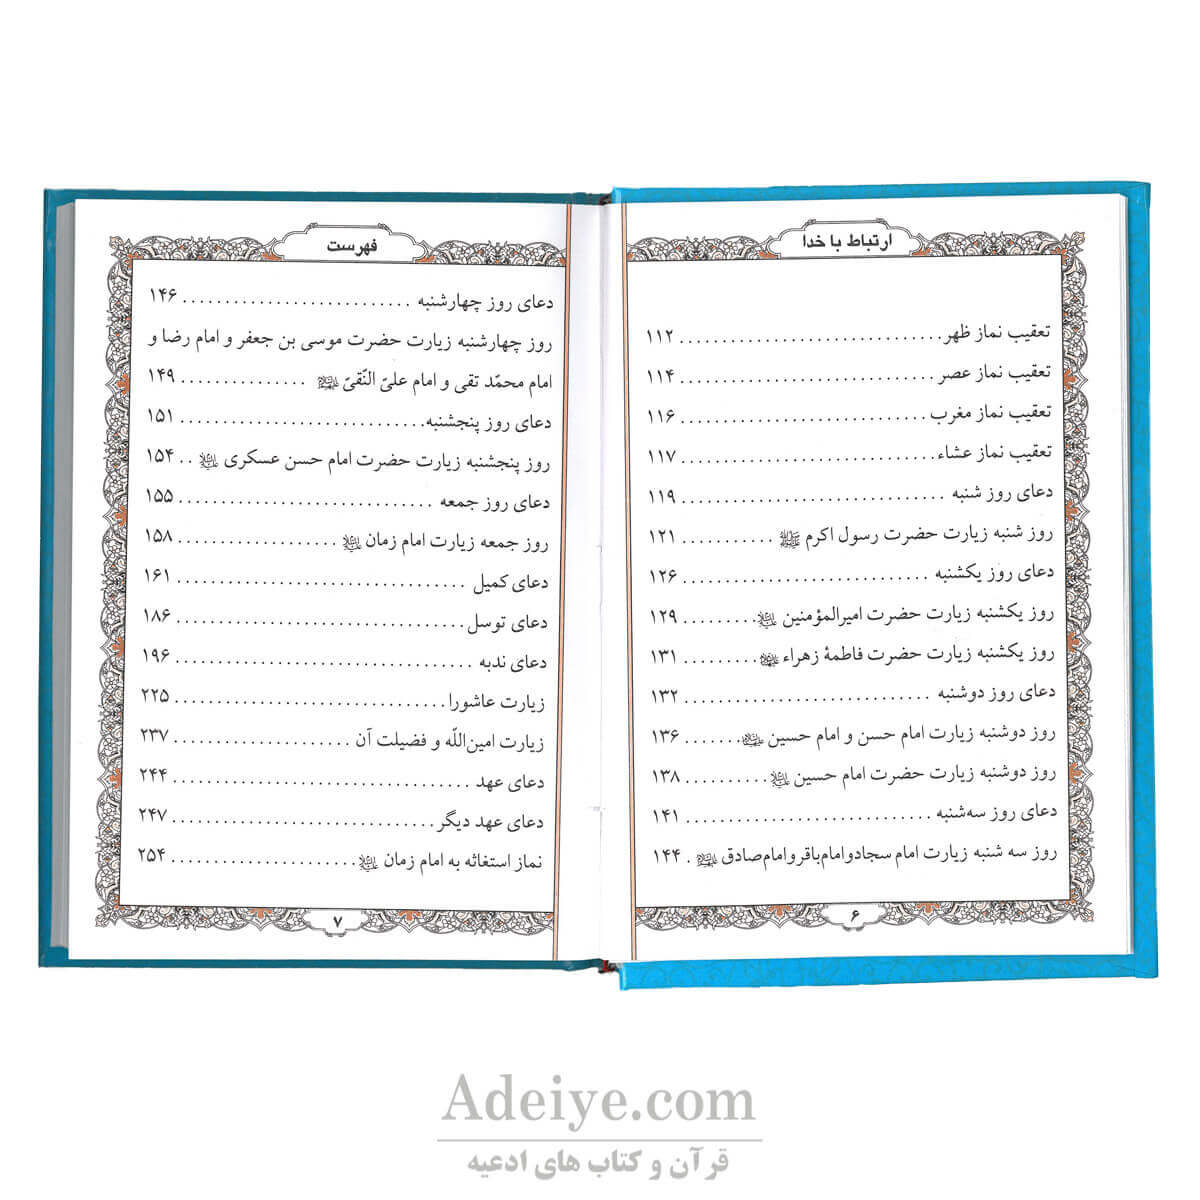 ارتباط با خدا
تعقیب نماز ظهر ............................ ۱۱۲
تعقیب نماز عصر ............................ ۱۱۴
تعقیب نماز مغرب ............................ ۱۱۶
تعقیب نماز عشاء ............................ ۱۱۷
دعای روز شنبه ............................ ۱۱۹
روز شنبه زیارت حضرت رسول اکرم ﷺ ........... ۱۲۱
دعای روز یکشنبه ............................ ۱۲۶
روز یکشنبه زیارت حضرت امیرالمؤمنین ......... ۱۲۹
روز یکشنبه زیارت حضرت فاطمهٔ زهراء ......... ۱۳۱
دعای روز دوشنبه ............................ ۱۳۲
روز دوشنبه زیارت امام حسن و امام حسین ....... ۱۳۶
روز دوشنبه زیارت حضرت امام حسین .......... ۱۳۸
دعای روز سه‌شنبه ............................ ۱۴۱
روز سه شنبه زیارت امام سجاد و امام باقر و امام صادق . ۱۴۴
۶
فهرست
دعای روز چهارشنبه ........................... ۱۴۶
روز چهارشنبه زیارت حضرت موسی بن جعفر و امام رضا و
امام محمّد تقی و امام علیّ النّقیّ ............... ۱۴۹
دعای روز پنجشنبه ............................ ۱۵۱
روز پنجشنبه زیارت حضرت امام حسن عسکری .. ۱۵۴
دعای روز جمعه ............................ ۱۵۵
روز جمعه زیارت امام زمان ................... ۱۵۸
دعای کمیل ................................. ۱۶۱
دعای توسل ................................. ۱۸۶
دعای ندبه ................................. ۱۹۶
زیارت عاشورا ............................... ۲۲۵
زیارت امین‌اللّه و فضیلت آن .................... ۲۳۷
دعای عهد ................................. ۲۴۴
دعای عهد دیگر ............................... ۲۴۷
نماز استغاثه به امام زمان ...................... ۲۵۴
۷
Adeiye.com
قرآن و کتاب های ادعیه